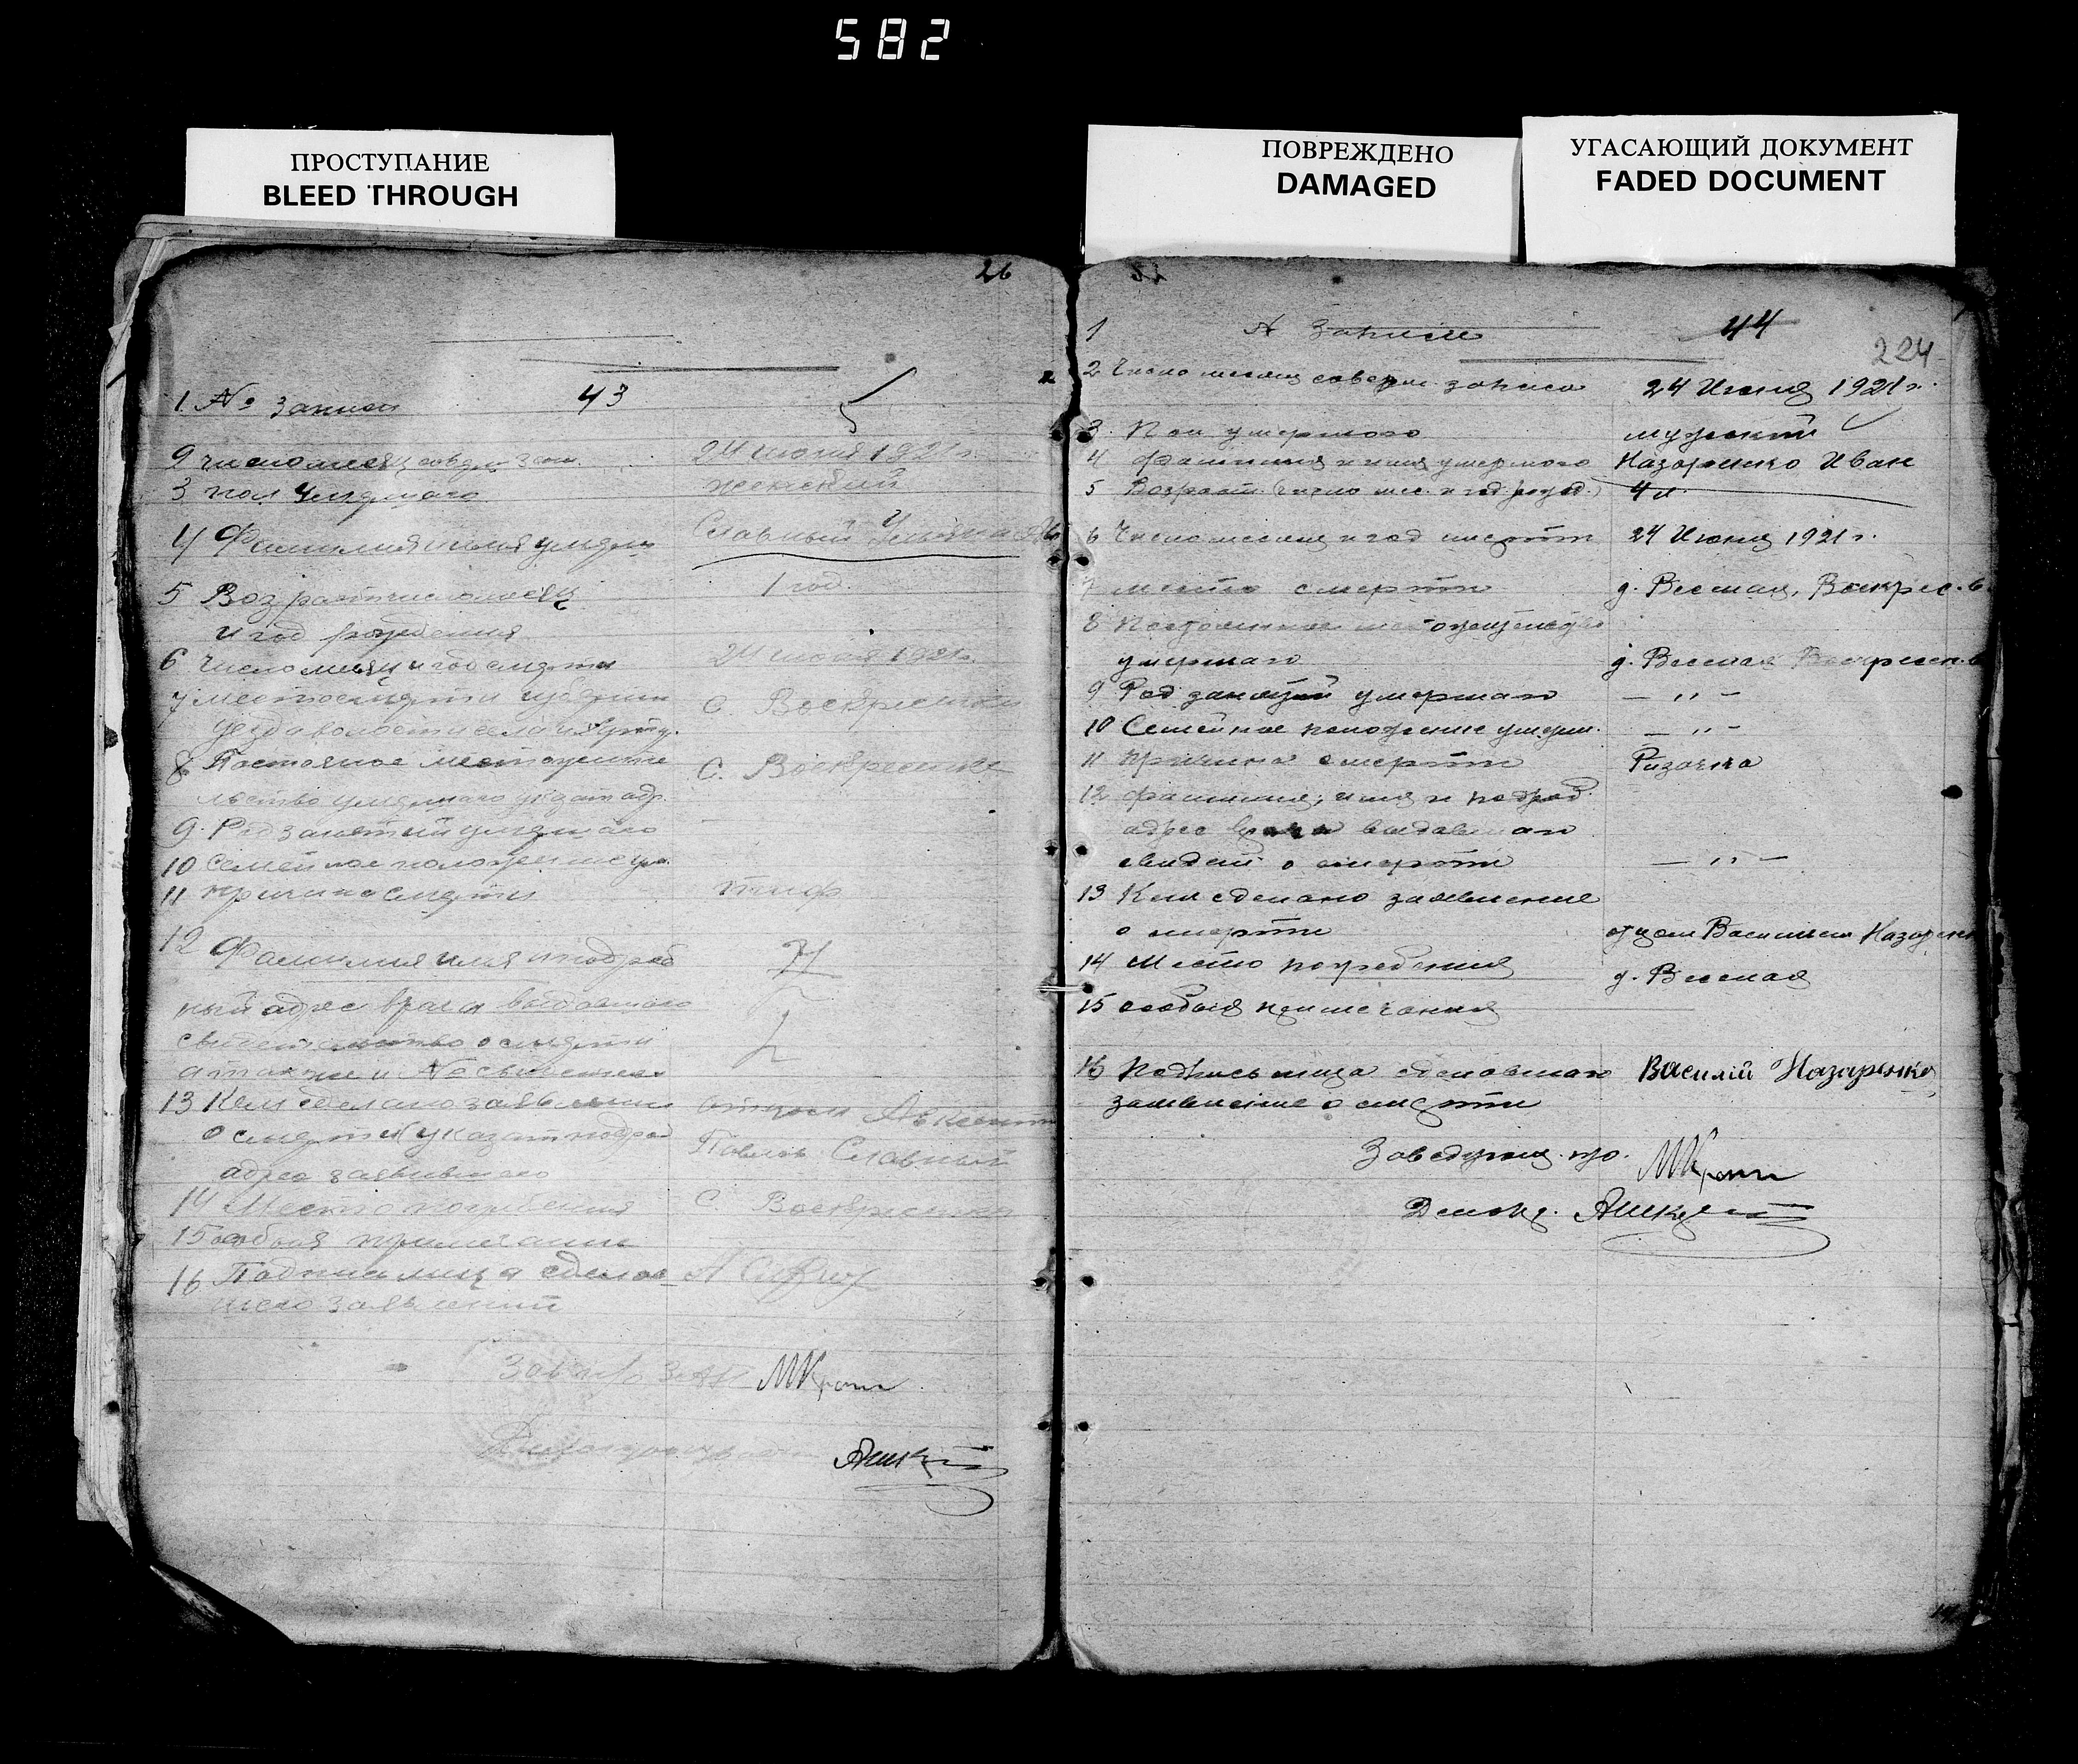 582
ПРОСТУПАНИЕ
BLEED THROUGH
ПОВРЕЖДЕНО
DAMAGED
УГАСАЮЩИЙ ДОКУМЕНТ
FADED DOCUMENT
26
1 № записи 43
2 число месяц соверш. зап. 24 июня 1921 г.
3 пол умершаго женский
4 Фамилия и имя умерш Славный
5 Возраст число месяц 1 год.
и год рождения
6 Число месяц и год смерти 24 июня 1921 г.
7 место смерти
уезда волости села и С Воскресенка
8 Постоянное местожите
льство умершаго указат адр. С. Воскресенка
9. Род занятий умершаго
10 Семейное положение ум.
11 причина смерти тиф
12 Фамилия имя и подроб
ный адрес врача выдавшаго
свидетельство о смерти
а также и № свидетел.
13 Кем сделано заявление отцом
о смерти указат подроб Славный
адрес заявившаго
14 Место погребения С Воскресенка
15 особыя примечания
16 Подпись лица сделав
шего заявлений
МКрот
44
224
1 № Записи
2 Число месяц соверш. записи 24 Июня 1921 г.
3. Пол умершаго мужской
4 Фамилия и имя умершаго Назаренко Иван
5 Возраст (число мес. и год рожд.) 4 л
6 Число месяц и год смерти 24 Июня 1921 г.
7 место смерти д. Веселая, Воскрес. в
8 Постоянное местожительство
умершаго д. Веселая Воскресен. в
9 Род занятий умершаго — ,, —
10 Семейное положение умерш. — ,, —
11 Причина смерти
12 Фамилия, имя и подроб.
адрес врача выдавшаго
свидет. о смерти — ,, —
13 Кем сделано заявление
о смерти отцом Василием Назаренк
14 Место погребения д. Веселая
15 особыя примечания
16 Подпись лица сделавшаго Василій Назаренко
заявление о смерти
Заведующ. МКрот
Делопр.